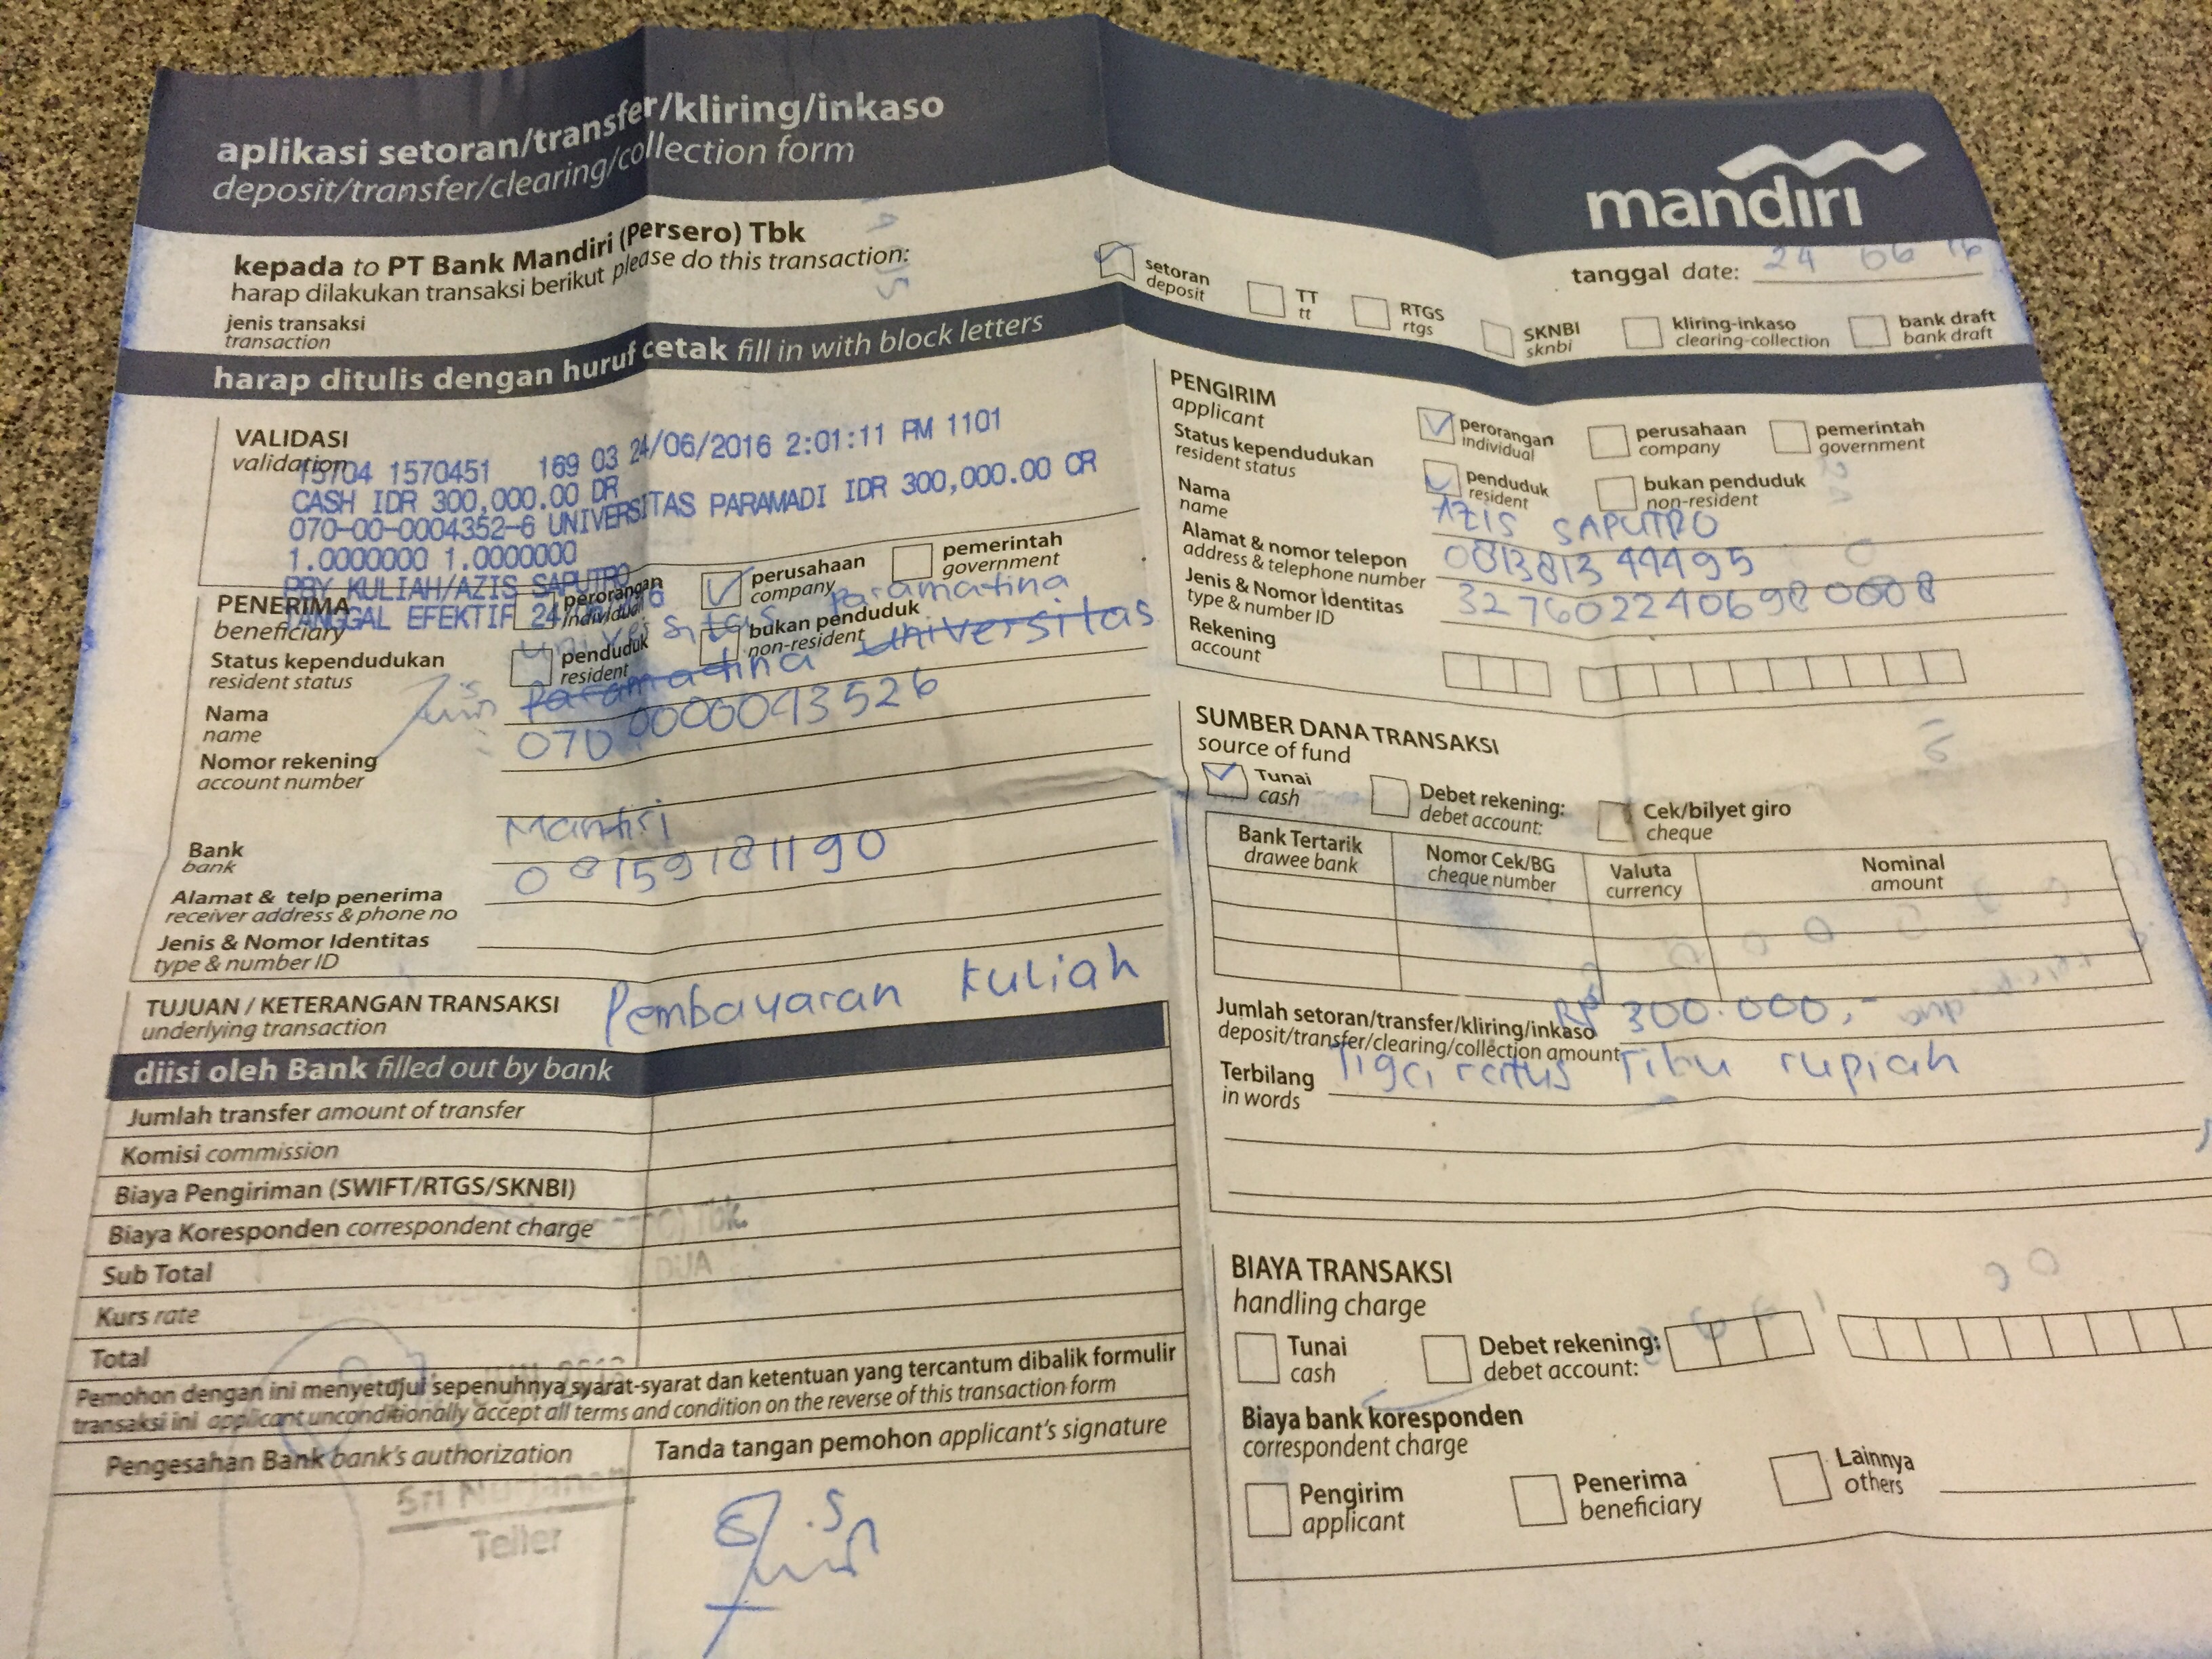 aplikasi setoran/transfer/kliring/inkaso
deposit/transfer/clearing/collection form
mandırı
kepada to PT Bank Mandiri (Persero) Tbk
harap dilakukan transaksi berikut please do this transaction:
tanggal date: 24 06 16
jenis transaksi
transaction
setoran
deposit
TT
tt
RTGS
rtgs
SKNBI
sknbi
kliring-inkaso
clearing-collection
bank draft
bank draft
harap ditulis dengan huruf cetak fill in with block letters
VALIDASI
validation
15704 1570451 169 03 24/06/2016 2:01:11 PM 1101
CASH IDR 300,000.00 DR
070-00-0004352-6 UNIVERSITAS PARAMADI IDR 300,000.00 CR
1.0000000 1.0000000
PBY KULIAH/AZIS SAPUTRO
TANGGAL EFEKTIF 24/06/2016
PENERIMA
beneficiary
perorangan
individual
perusahaan
company
pemerintah
government
Status kependudukan
resident status
penduduk
resident
bukan penduduk
non-resident
Universitas Paramadina
Nama
name
Universitas
Paramadina
Nomor rekening
account number
070 0000043526
Bank
bank
Mandiri
Alamat & telp penerima
receiver address & phone no
0 8159181190
Jenis & Nomor Identitas
type & number ID
TUJUAN / KETERANGAN TRANSAKSI
underlying transaction
Pembayaran kuliah
diisi oleh Bank filled out by bank
Jumlah transfer amount of transfer
Komisi commission
Biaya Pengiriman (SWIFT/RTGS/SKNBI)
Biaya Koresponden correspondent charge
Sub Total
Kurs rate
Total
Pemohon dengan ini menyetujui sepenuhnya syarat-syarat dan ketentuan yang tercantum dibalik formulir
transaksi ini applicant unconditionally accept all terms and condition on the reverse of this transaction form
Pengesahan Bank bank's authorization
Tanda tangan pemohon applicant's signature
Teller
PENGIRIM
applicant
perorangan
individual
perusahaan
company
pemerintah
government
Status kependudukan
resident status
penduduk
resident
bukan penduduk
non-resident
Nama
name
AZIS SAPUTRO
Alamat & nomor telepon
address & telephone number
Jenis & Nomor Identitas
type & number ID
Rekening
account
SUMBER DANA TRANSAKSI
source of fund
Tunai
cash
Debet rekening:
debet account:
Cek/bilyet giro
cheque
Bank Tertarik
drawee bank
Nomor Cek/BG
cheque number
Valuta
currency
Nominal
amount
Jumlah setoran/transfer/kliring/inkaso
deposit/transfer/clearing/collection amount
Rp 300.000,-
Terbilang
in words
Tiga ratus ribu rupiah
BIAYA TRANSAKSI
handling charge
Tunai
cash
Debet rekening:
debet account:
Biaya bank koresponden
correspondent charge
Pengirim
applicant
Penerima
beneficiary
Lainnya
others